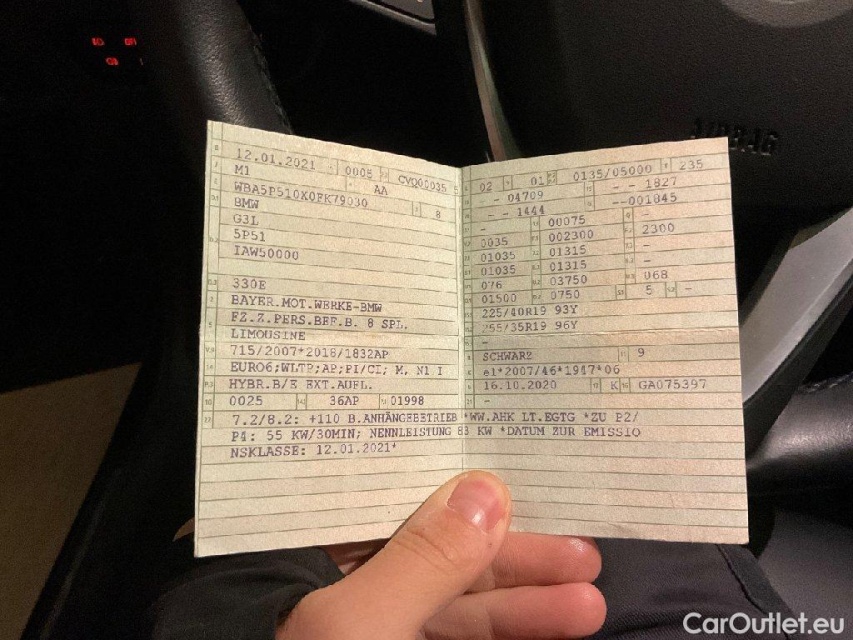 12.01.2021 0005 CVQ00035
M1 AA
WBA5P510X0FK79030 8
BMW
G3L
5P51
IAW50000
330E
BAYER.MOT.WERKE-BMW
FZ.Z.PERS.BEF.B. 8 SPL.
LIMOUSINE
715/2007*2018/1832AP
EURO6;WLTP;AP;PI/CI; M, N1 I
HYBR.B/E EXT.AUFL.
0025 36AP 01998
02 01 0135/05000 235
- 04709 - - 1827
- - 1444 --001845
- 00075 -
0035 002300 2300
01035 01315 -
01035 01315 -
076 03750 068
01500 0750 5 -
225/40R19 93Y
255/35R19 96Y
-
SCHWARZ 9
e1*2007/46*1947*06
16.10.2020 K GA075397
-
7.2/8.2: +110 B.ANHÄNGEBETRIEB *WW.AHK LT.EGTG *ZU P2/
P4: 55 KW/30MIN; NENNLEISTUNG 83 KW *DATUM ZUR EMISSIO
NSKLASSE: 12.01.2021*
AIRBAG
CarOutlet.eu